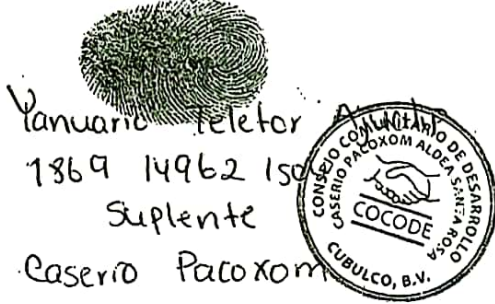 Yanuario Teletor
1869 14962
Suplente
Caserio Pacoxom
CONSEJO COMUNITARIO DE DESARROLLO
CASERIO PACOXOM ALDEA SANTA ROSA
COCODE
CUBULCO, B.V.